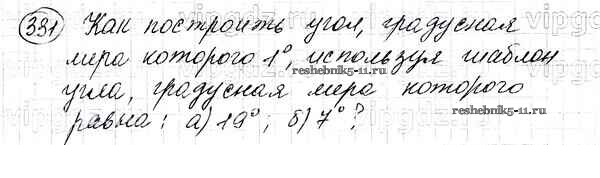 331 Как построить угол, градусная
мера которого 1°, используя шаблон
reshebnik5-11.ru
угла, градусная мера которого
reshebnik5-11.ru
равна: а) 19°; б) 7°?